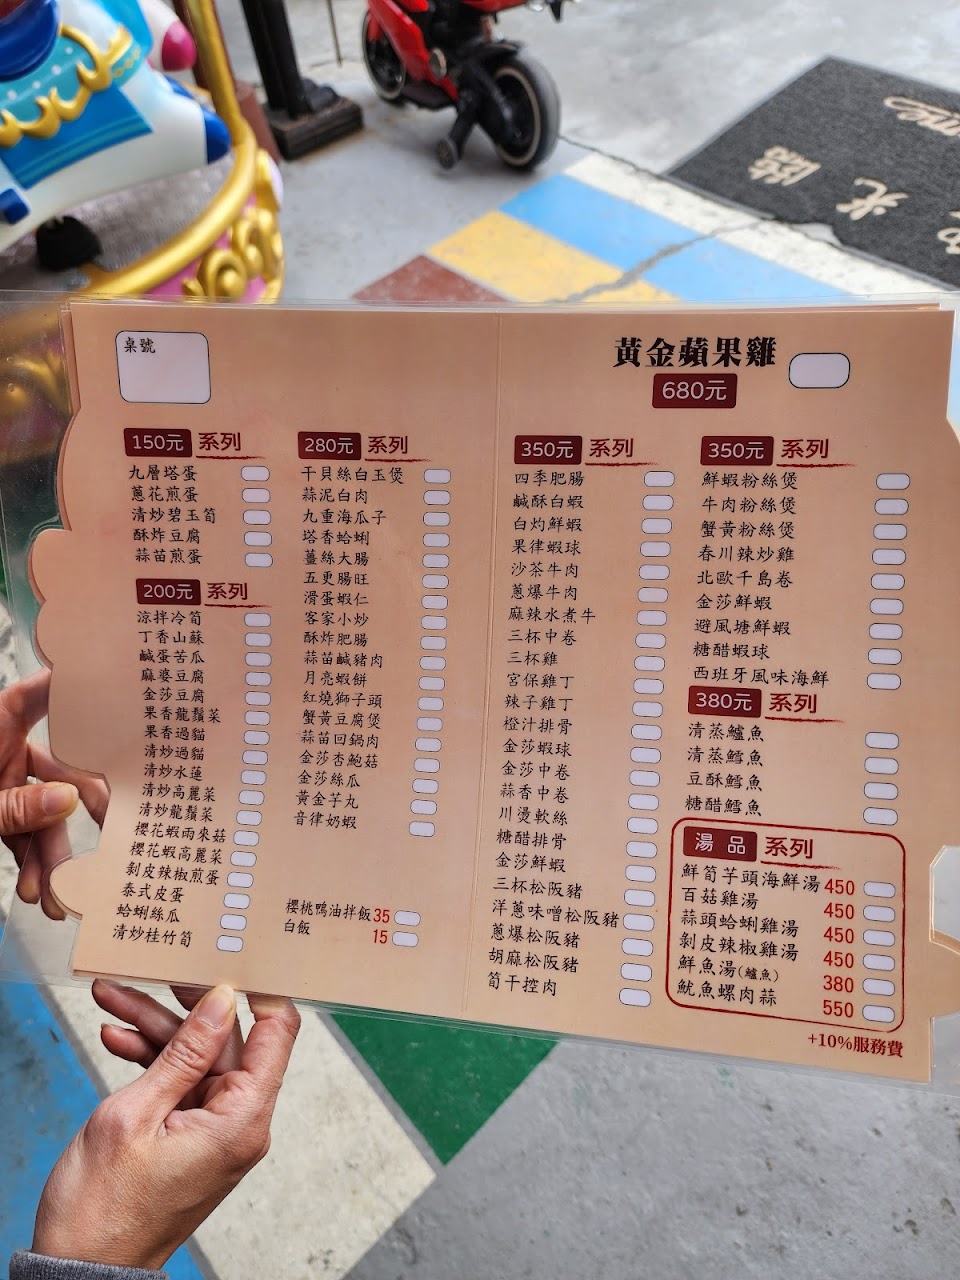 迎
光
臨
me
桌號
150元 系列
九層塔蛋
蔥花煎蛋
清炒碧玉筍
酥炸豆腐
蒜苗煎蛋
200元 系列
涼拌冷筍
丁香山蘇
鹹蛋苦瓜
麻婆豆腐
金莎豆腐
果香龍鬚菜
果香過貓
清炒過貓
清炒水蓮
清炒高麗菜
清炒龍鬚菜
櫻花蝦雨來菇
櫻花蝦高麗菜
剝皮辣椒煎蛋
泰式皮蛋
蛤蜊絲瓜
清炒桂竹筍
280元 系列
干貝絲白玉煲
蒜泥白肉
九重海瓜子
塔香蛤蜊
薑絲大腸
五更腸旺
滑蛋蝦仁
客家小炒
酥炸肥腸
蒜苗鹹豬肉
月亮蝦餅
紅燒獅子頭
蟹黃豆腐煲
蒜苗回鍋肉
金莎杏鮑菇
金莎絲瓜
黃金芋丸
音律奶蝦
櫻桃鴨油拌飯35
白飯 15
黃金蘋果雞
680元
350元 系列
四季肥腸
鹹酥白蝦
白灼鮮蝦
果律蝦球
沙茶牛肉
蔥爆牛肉
麻辣水煮牛
三杯中卷
三杯雞
宮保雞丁
辣子雞丁
橙汁排骨
金莎蝦球
金莎中卷
蒜香中卷
川燙軟絲
糖醋排骨
金莎鮮蝦
三杯松阪豬
洋蔥味噌松阪豬
蔥爆松阪豬
胡麻松阪豬
筍干控肉
350元 系列
鮮蝦粉絲煲
牛肉粉絲煲
蟹黃粉絲煲
春川辣炒雞
北歐千島卷
金莎鮮蝦
避風塘鮮蝦
糖醋蝦球
西班牙風味海鮮
380元 系列
清蒸鱸魚
清蒸鱈魚
豆酥鱈魚
糖醋鱈魚
湯品 系列
鮮筍芋頭海鮮湯 450
百菇雞湯 450
蒜頭蛤蜊雞湯 450
剝皮辣椒雞湯 450
鮮魚湯(鱸魚) 380
魷魚螺肉蒜 550
+10%服務費